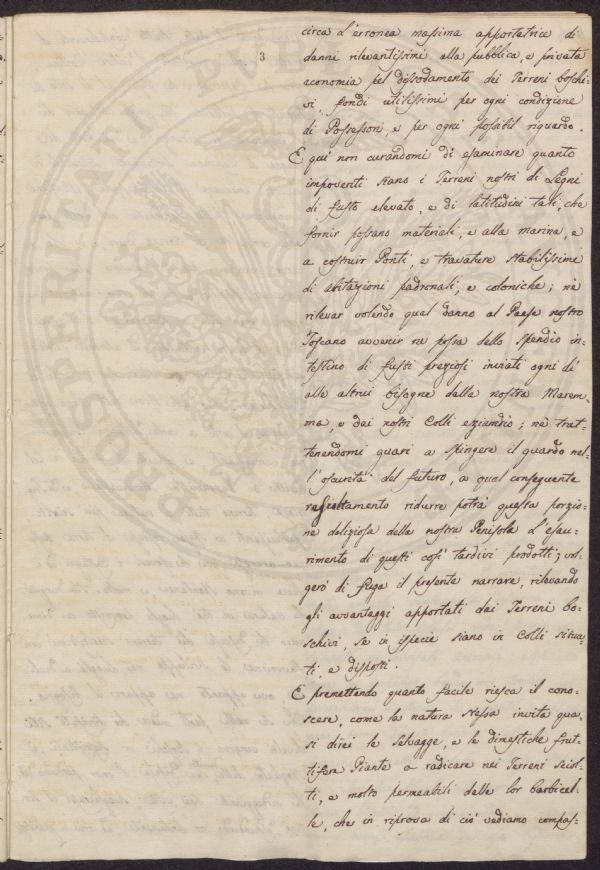 circa l'erronea massima apportatrice di
3
danni rilevantissimi alla pubblica, e privata
economia pel dissodamento dei Terreni boschi-
vi, fondi utilissimi per ogni condizione
di Possessori, e per ogni possibil riguardo.
E quì non curandomi di esaminare quanto
impoveriti siano i Terreni nostri di Legni
di fusto elevato, e di latitudini tali, che
fornir possano materiali, e alla marina, e
a costruir Ponti, e travature stabilissime
di abitazioni padronali, e coloniche; nè
rilevar volendo qual danno al Paese nostro
Toscano avvenir ne possa dello spendio in-
testino di fusti preziosi inviati ogni dì
alle altrui bisogne dalla nostra Marem-
ma, e dai nostri Colli eziandio; nè trat-
tenendomi guari a spingere il guardo nel-
l'oscurità del futuro, a qual conseguente
ridurre potrà questa porzio-
ne deliziosa della nostra Penisola l'esau-
rimento di questi così tardivi prodotti; vol-
gerò di fuga il presente narrare, rilevando
gli avvantaggi apportati dai Terreni bo-
schivi, se in ispecie siano in Colli situa-
ti, e disposti.
E premettendo quanto facile riesca il cono-
scere, come la natura stessa invita qua-
si direi le selvagge, e le dimestiche frut-
tifere Piante a radicare nei Terreni sciol-
ti, e molto permeabili dalle lor barbicel-
le, che in riprova di ciò vediamo compas-
PROSPERITATI